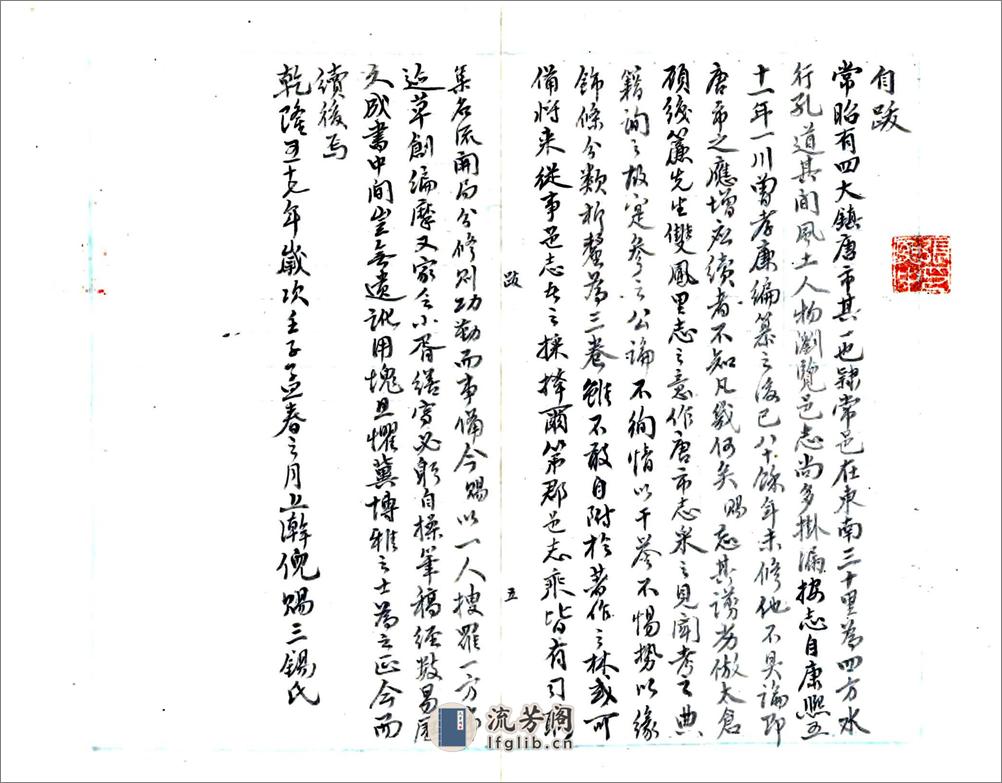 自跋
常昭有四大鎮唐市其一也隸常邑在東南三十里為四方水
行孔道其間風土人物瀏覽邑志尚多掛漏按志自康熙五
十一年一川曾孝廉編纂之後已八十餘年未修他不具論即
唐市之應增應續者不知凡幾何矣賜忘其謭劣倣太倉
頋綫簾先生雙鳳里志之意作唐市志采之見聞考之典
籍詢之故寔參之公論不徇情以干譽不惕勢以緣
飾條分類析釐為三卷雖不敢自附於著作之林或可
備將來從事邑志者之採擇爾第郡邑志乘皆有司
跋
五
集名流開局分修則功勤而事備今賜以一人搜羅一方
草創編摩又家無小胥繕寫必躬自操筆稿經數易
成書中間豈無遺訛用愧且懼冀博雅之士為之正今而
續後焉
乾隆五十七年歲次壬子孟春之月上澣倪賜三錫氏
流芳閣
lfglib.cn